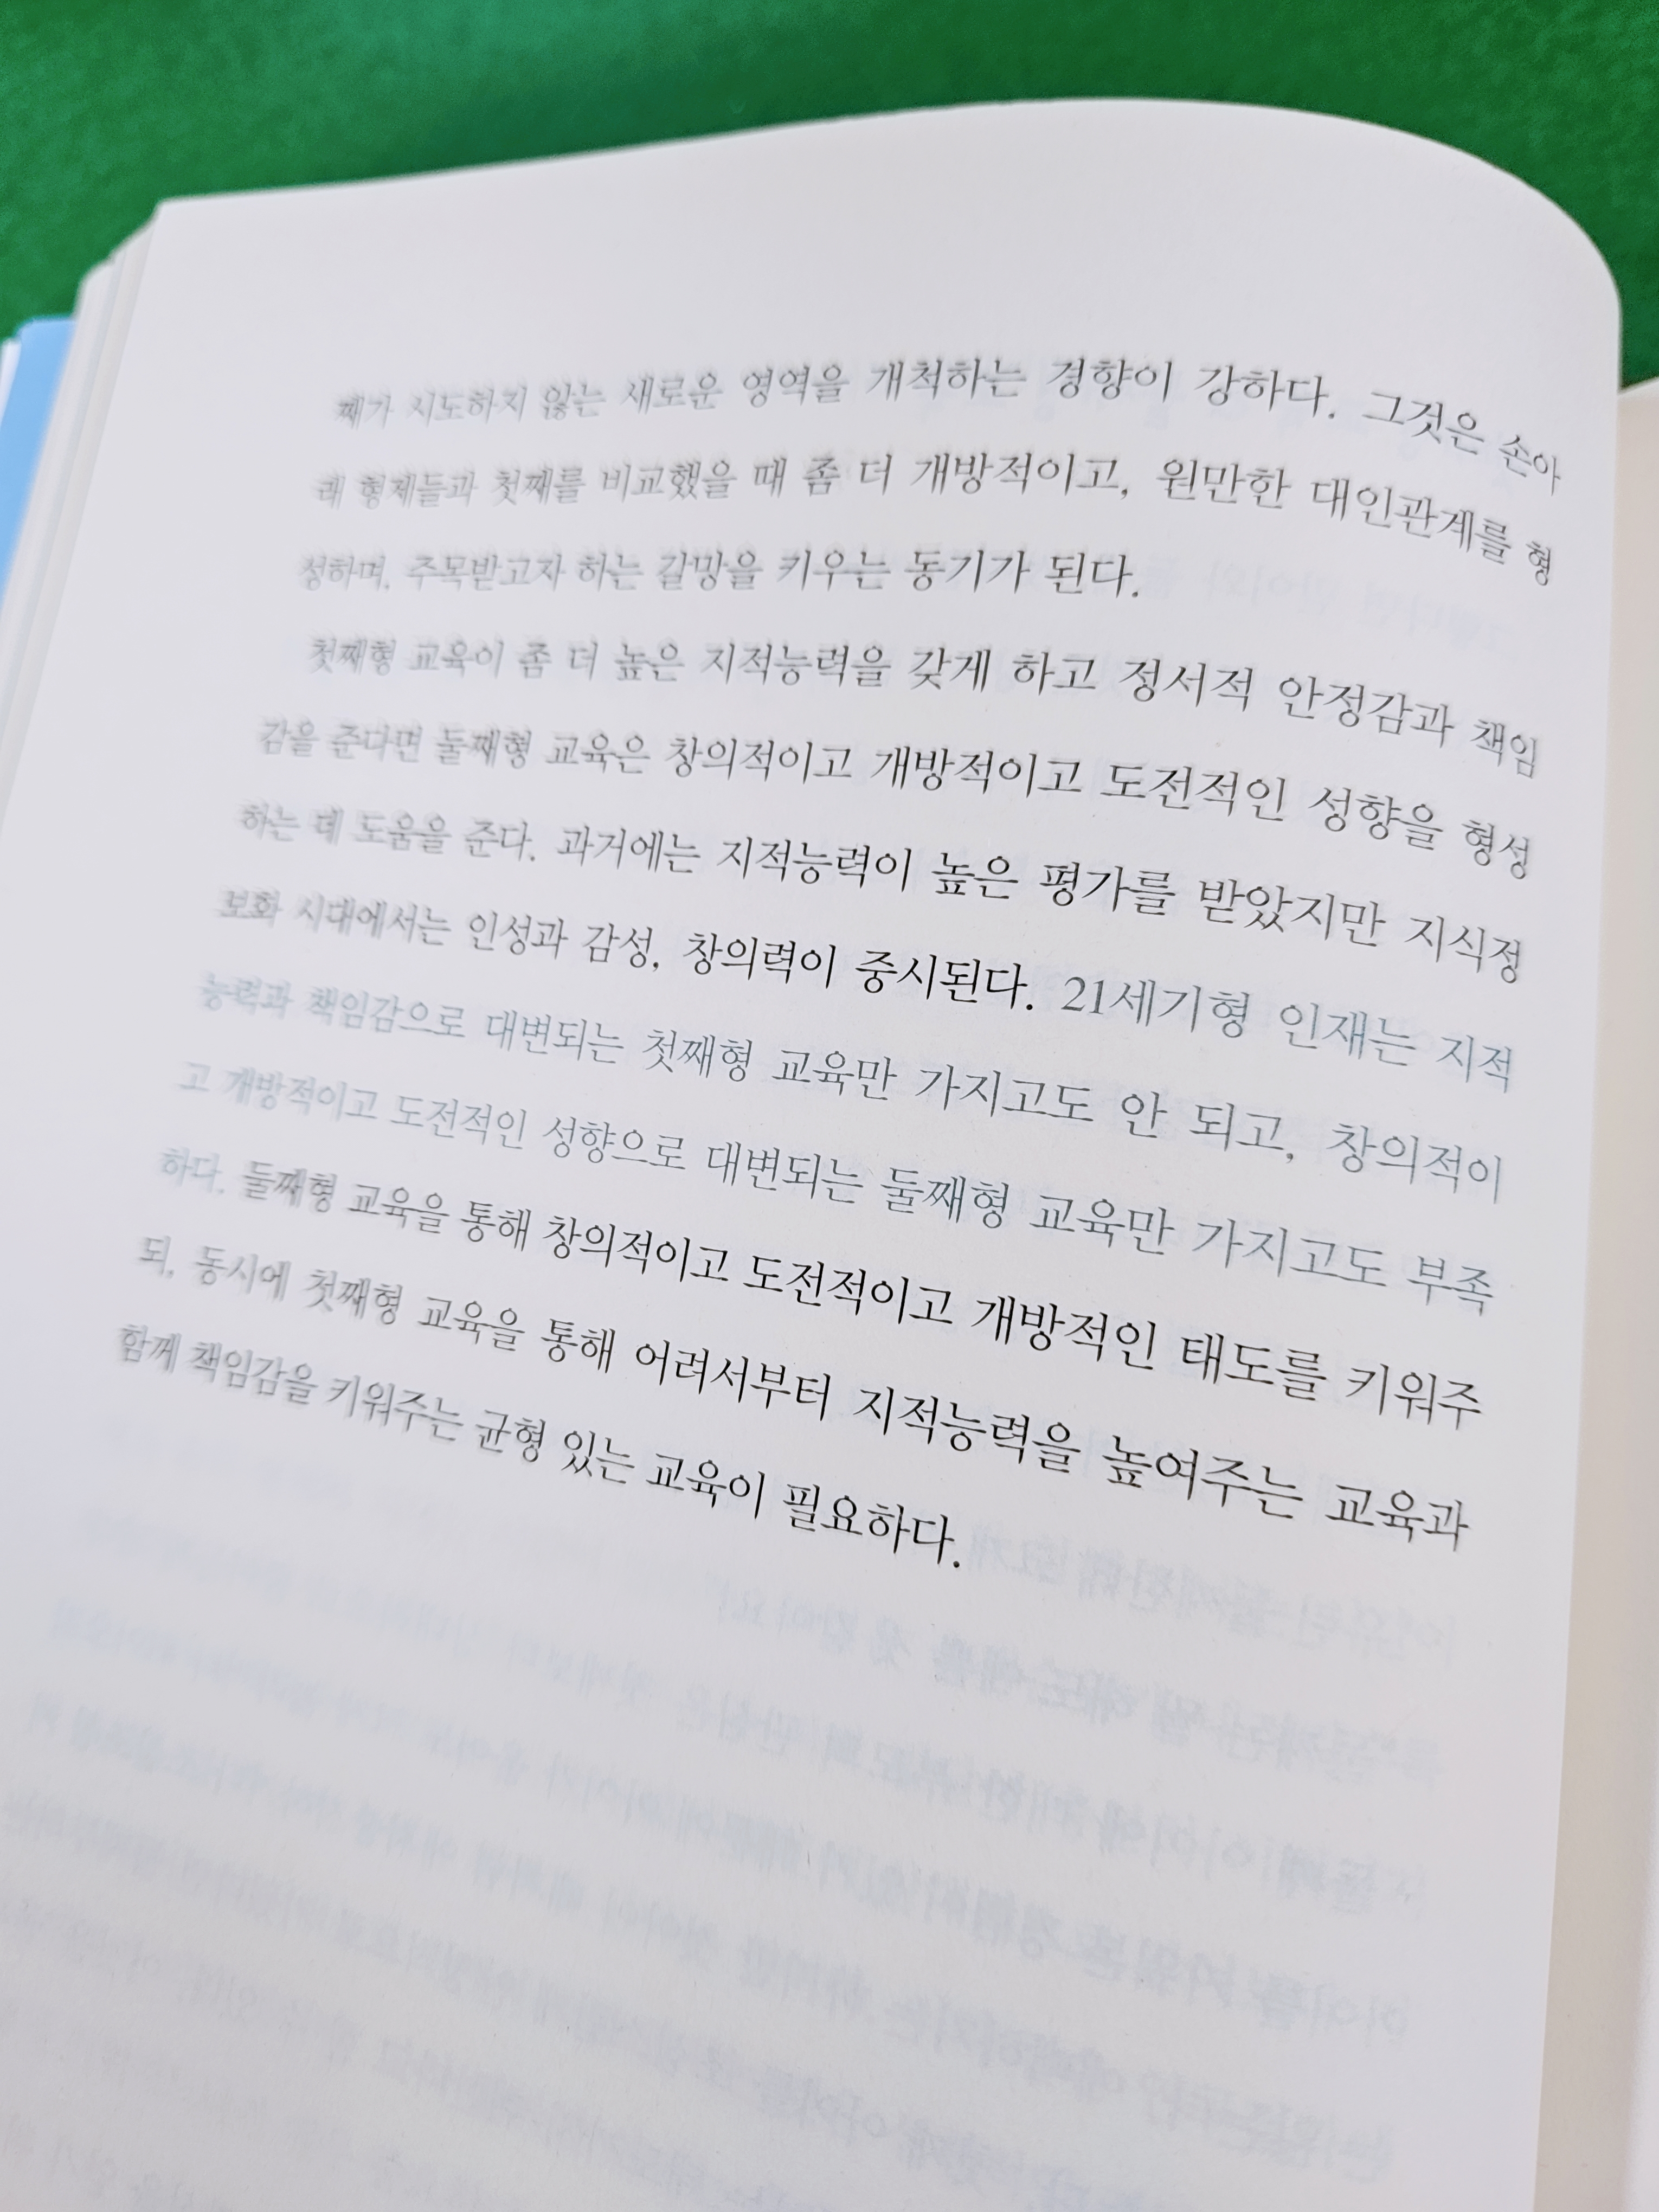 째가 시도하지 않는 새로운 영역을 개척하는 경향이 강하다. 그것은 손아
래 형제들과 첫째를 비교했을 때 좀 더 개방적이고, 원만한 대인관계를 형
성하며, 주목받고자 하는 갈망을 키우는 동기가 된다.
첫째형 교육이 좀 더 높은 지적능력을 갖게 하고 정서적 안정감과 책임
감을 준다면 둘째형 교육은 창의적이고 개방적이고 도전적인 성향을 형성
하는 데 도움을 준다. 과거에는 지적능력이 높은 평가를 받았지만 지식정
보화 시대에서는 인성과 감성, 창의력이 중시된다. 21세기형 인재는 지적
능력과 책임감으로 대변되는 첫째형 교육만 가지고도 안 되고, 창의적이
고 개방적이고 도전적인 성향으로 대변되는 둘째형 교육만 가지고도 부족
하다. 둘째형 교육을 통해 창의적이고 도전적이고 개방적인 태도를 키워주
되, 동시에 첫째형 교육을 통해 어려서부터 지적능력을 높여주는 교육과
함께 책임감을 키워주는 균형 있는 교육이 필요하다.